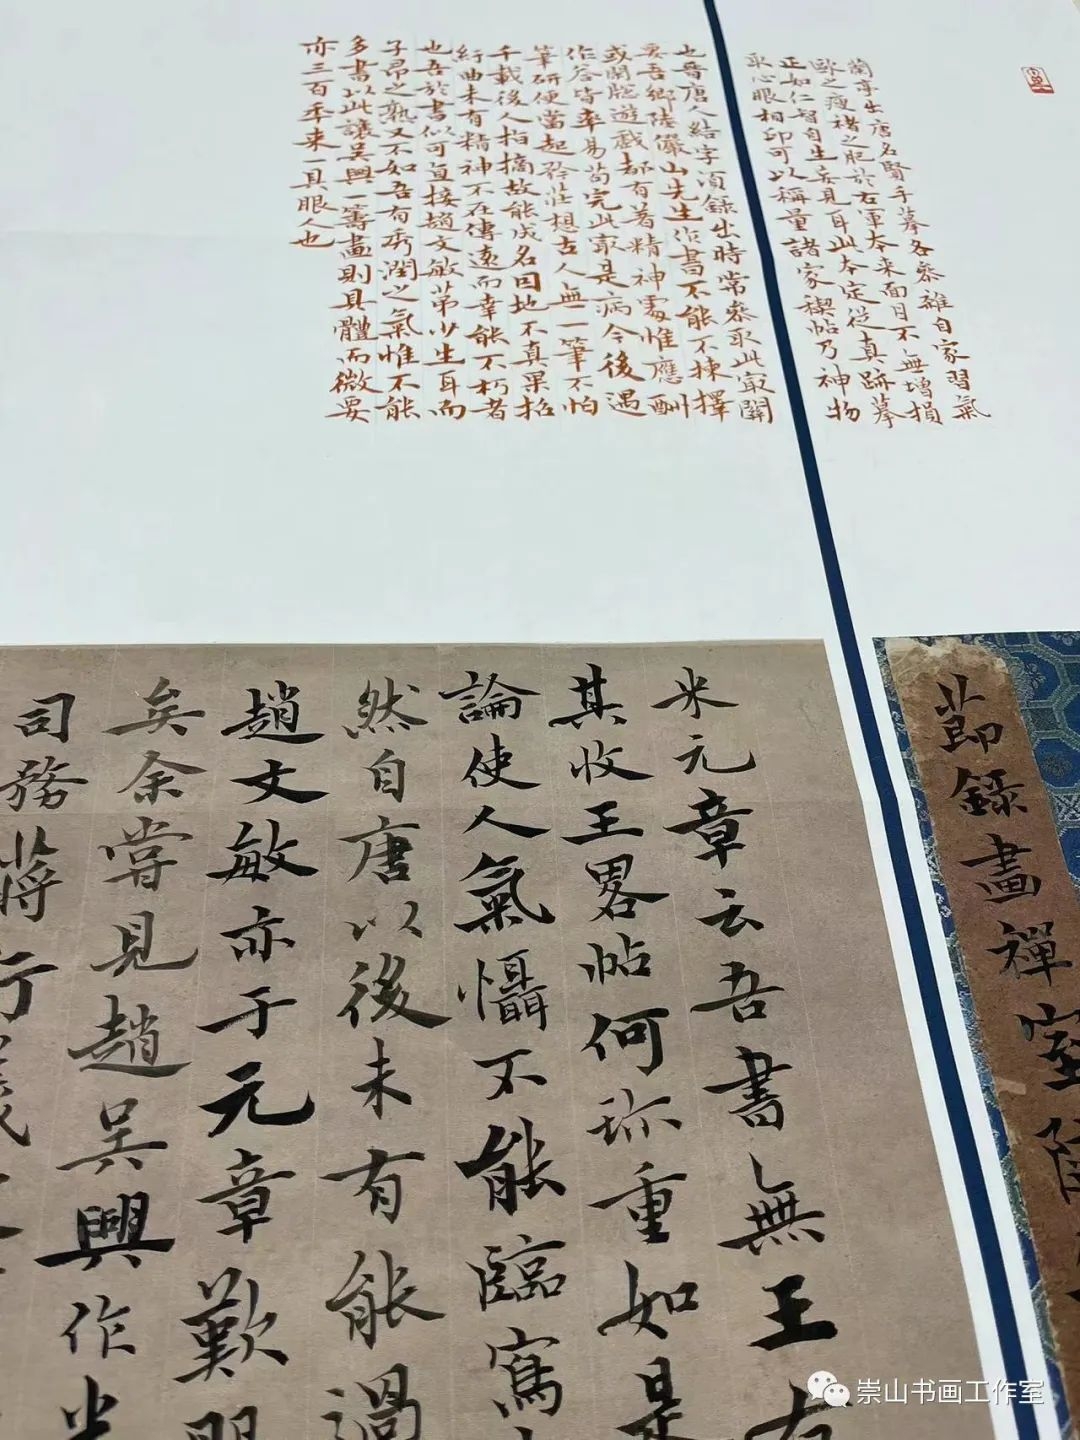 蘭亭出唐名賢手摹各參雜自家習氣
歐之瘦褚之肥於右軍本来面目不無增損
正如仁智自生妄見耳此本定從真跡摹
取心眼相印可以稱量諸家禊帖乃神物
也晉唐人結字須錄出時常參取此最關
要吾鄉陸儼山先生作書不能不揀擇
或閒窗遊戲都有著精神處惟應酬
作答皆率易苟完此最是病今後遇
筆研便當起矜莊想古人無一筆不怕
千載後人指摘故能成名因地不真果招
紆曲未有精神不在傳遠而幸能不朽者
也吾於書似可直接趙文敏第少生耳而
子昂之熟又不如吾有秀潤之氣惟不能
多書以此讓吳興一籌畫則具體而微要
亦三百年来一具眼人也
節錄畫禪室
米元章云吾書無王右
其收王畧帖何珎重如是
論使人氣懾不能臨寫
然自唐以後未有能過
趙文敏亦于元章歎
矣余嘗見趙吳興作米
司務蔣行義
崇山书画工作室